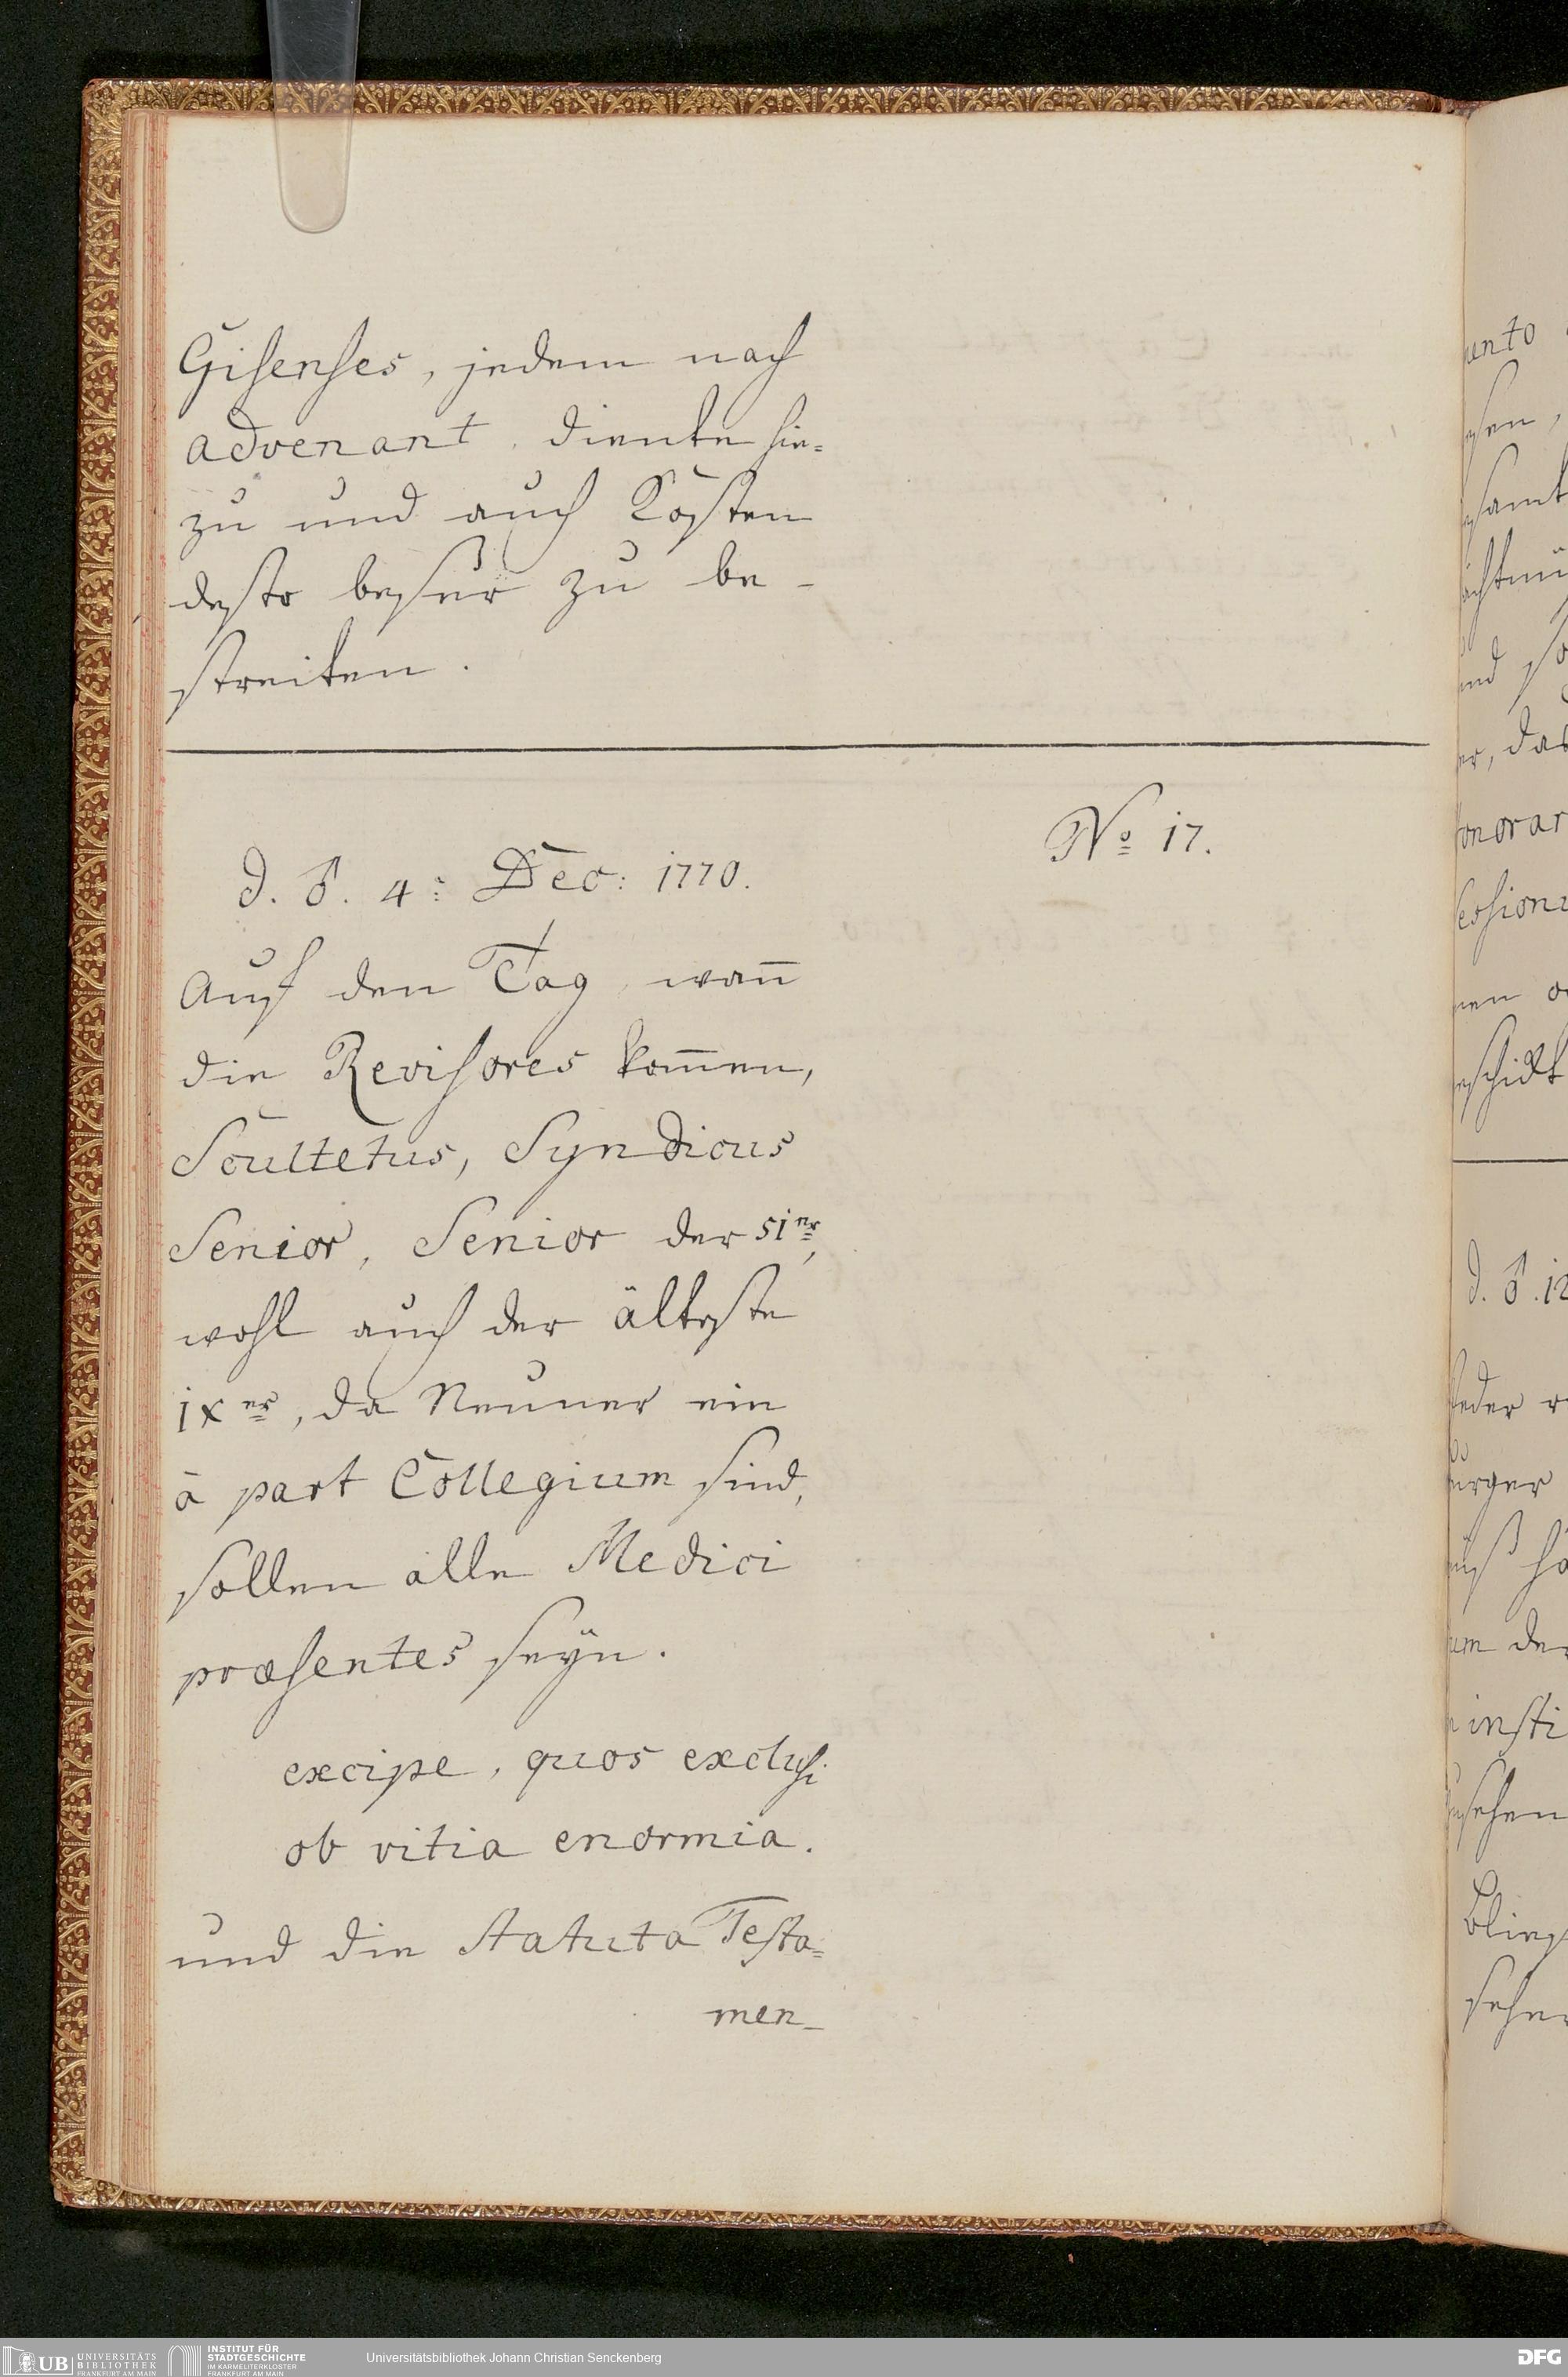 Gisenses, jedem nach
advenant, diente hie=
zu und auch Kosten
desto besser zu be-
streiten.
No 17.
d. ♂. 4: Dec: 1770.
Auf den Tag, wañ
die Revisores kom̃en,
Scultetus, Syndicus
Senior, Senior der 51er,
wohl auch der älteste
IXer, da Neuner ein
à part Collegium sind,
sollen alle Medici
præsentes seyn.
excipe, quos exclusi
ob vitia enormia.
und die Statuta Testa=
men-
UB UNIVERSITÄTS BIBLIOTHEK FRANKFURT AM MAIN
INSTITUT FÜR STADTGESCHICHTE IM KARMELITERKLOSTER FRANKFURT AM MAIN
Universitätsbibliothek Johann Christian Senckenberg
DFG